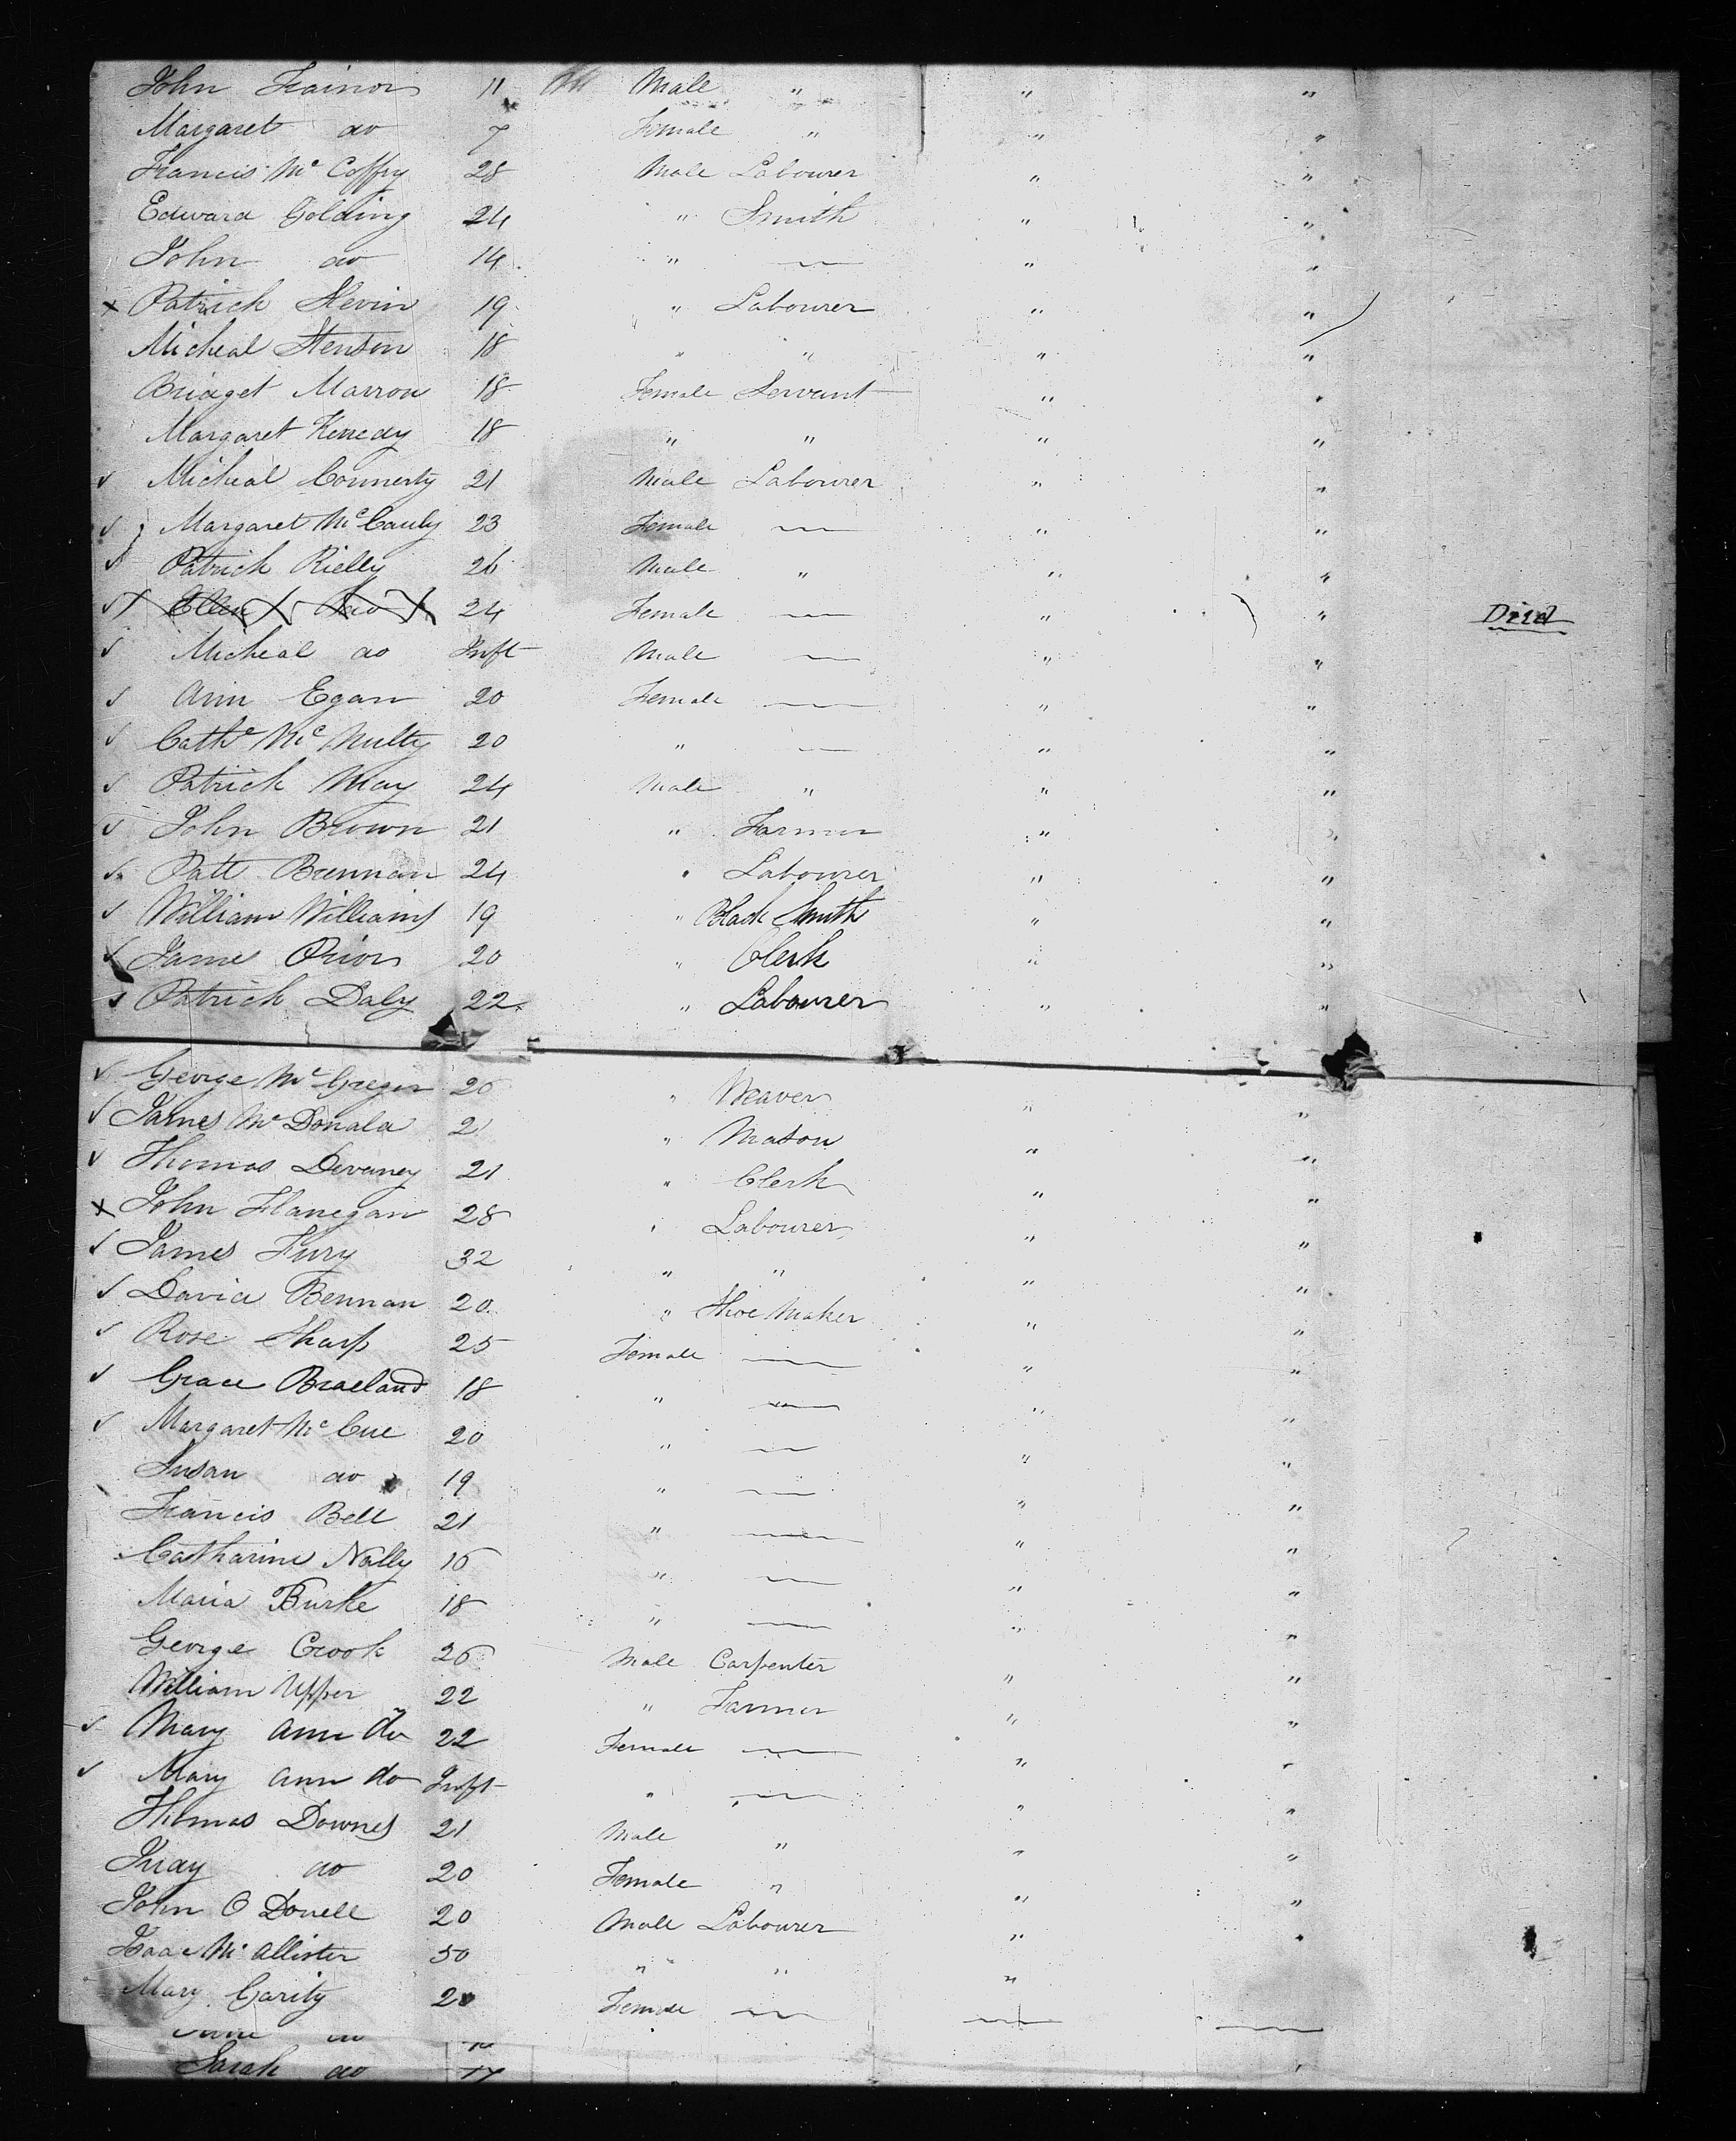 John Trainor 11 Male " " "
Margaret do 7 Female " " "
Francis Mc Coffry 28 Male Labourer " "
Edward Golding 24 " Smith " "
John do 14 " — " "
x Patrick Slevin 19 " Labourer " "
Micheal Stenson 18 " " " "
Bridget Marron 18 Female Servant " "
Margaret Kenedy 18 " " " "
✓ Micheal Connerty 21 Male Labourer " "
✓ Margaret Mc Cauly 23 Female — " "
✓ Patrick Rielly 26 Male " " "
✓ Ellen do 24 Female — " " Died
✓ Micheal do Inft Male — " "
✓ Ann Egan 20 Female — " "
✓ Cathe Mc Nulty 20 " — " "
✓ Patrick May 24 Male " " "
✓ John Brown 21 " Farmer " "
✓ Patt Brennan 24 " Labourer " "
✓ William Williams 19 " Black Smith " "
✓ James Prior 20 " Clerk " "
✓ Patrick Daly 22 " Labourer " "
✓ George Mc Gregor 26 " Weaver " "
✓ James Mc Donald 21 " Mason " "
✓ Thomas Devaney 21 " Clerk " "
x John Flanegan 28 " Labourer " "
✓ James Fury 32 " " " "
✓ David Bennan 20 " Shoe Maker " "
✓ Rose Sharp 25 Female — " "
✓ Grace 18 " — " "
✓ Margaret Mc Cue 20 " — " "
Susan do 19 " — " "
Francis Bell 21 " — " "
Catharine Nally 16 " — " "
Maria Burke 18 " — " "
George Crook 26 Male Carpenter " "
William Upper 22 " Farmer " "
✓ Mary Ann do 22 Female — " "
✓ Mary Ann do Inft " — " "
Thomas Downes 21 Male " " "
Judy do 20 Female " " "
John O Donell 20 Male Labourer " "
Isaac Mc Allister 50 " " " "
Mary Garity 20 Female — — —
do
Sarah do 17